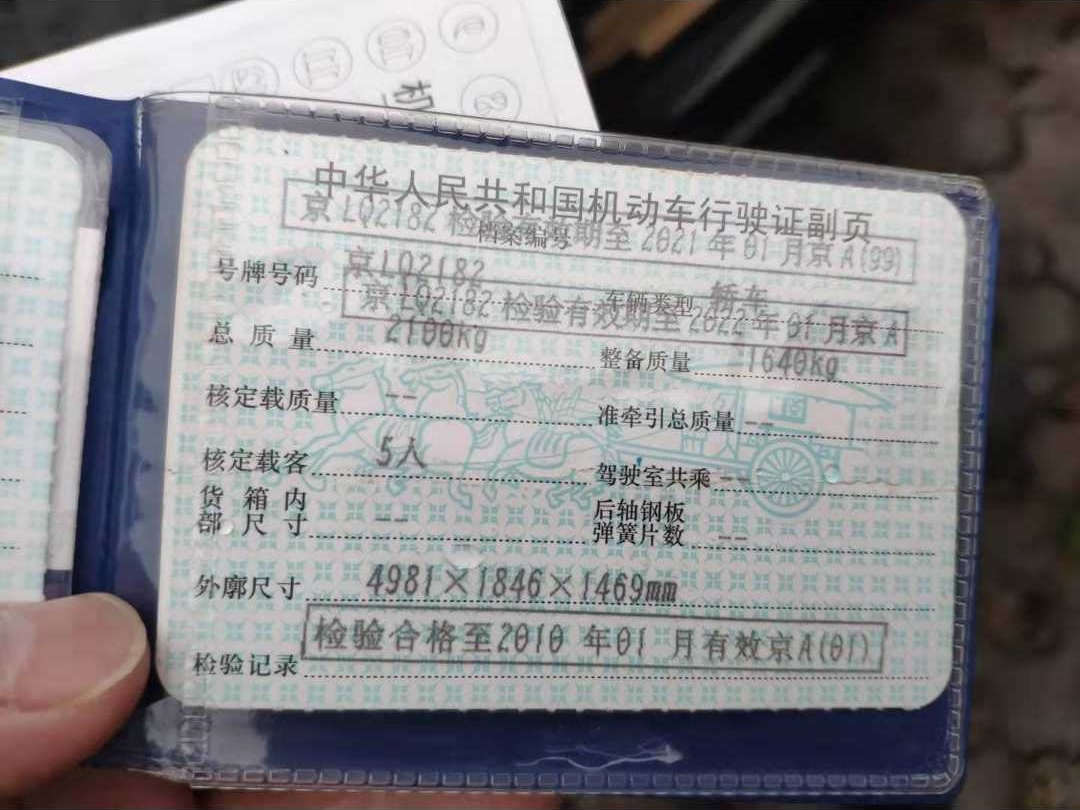 中华人民共和国机动车行驶证副页
京LQ2182 检验有效期至2021年01月京A(99)
档案编号
号牌号码 京LQ2182 车辆类型 轿车
京LQ2182 检验有效期至2022年01月京A
总质量 2100kg 整备质量 1640kg
核定载质量 -- 准牵引总质量 --
核定载客 5人 驾驶室共乘 --
货箱内部尺寸 -- 后轴钢板弹簧片数 --
外廓尺寸 4981×1846×1469mm
检验记录 检验合格至2010年01月有效京A(01)